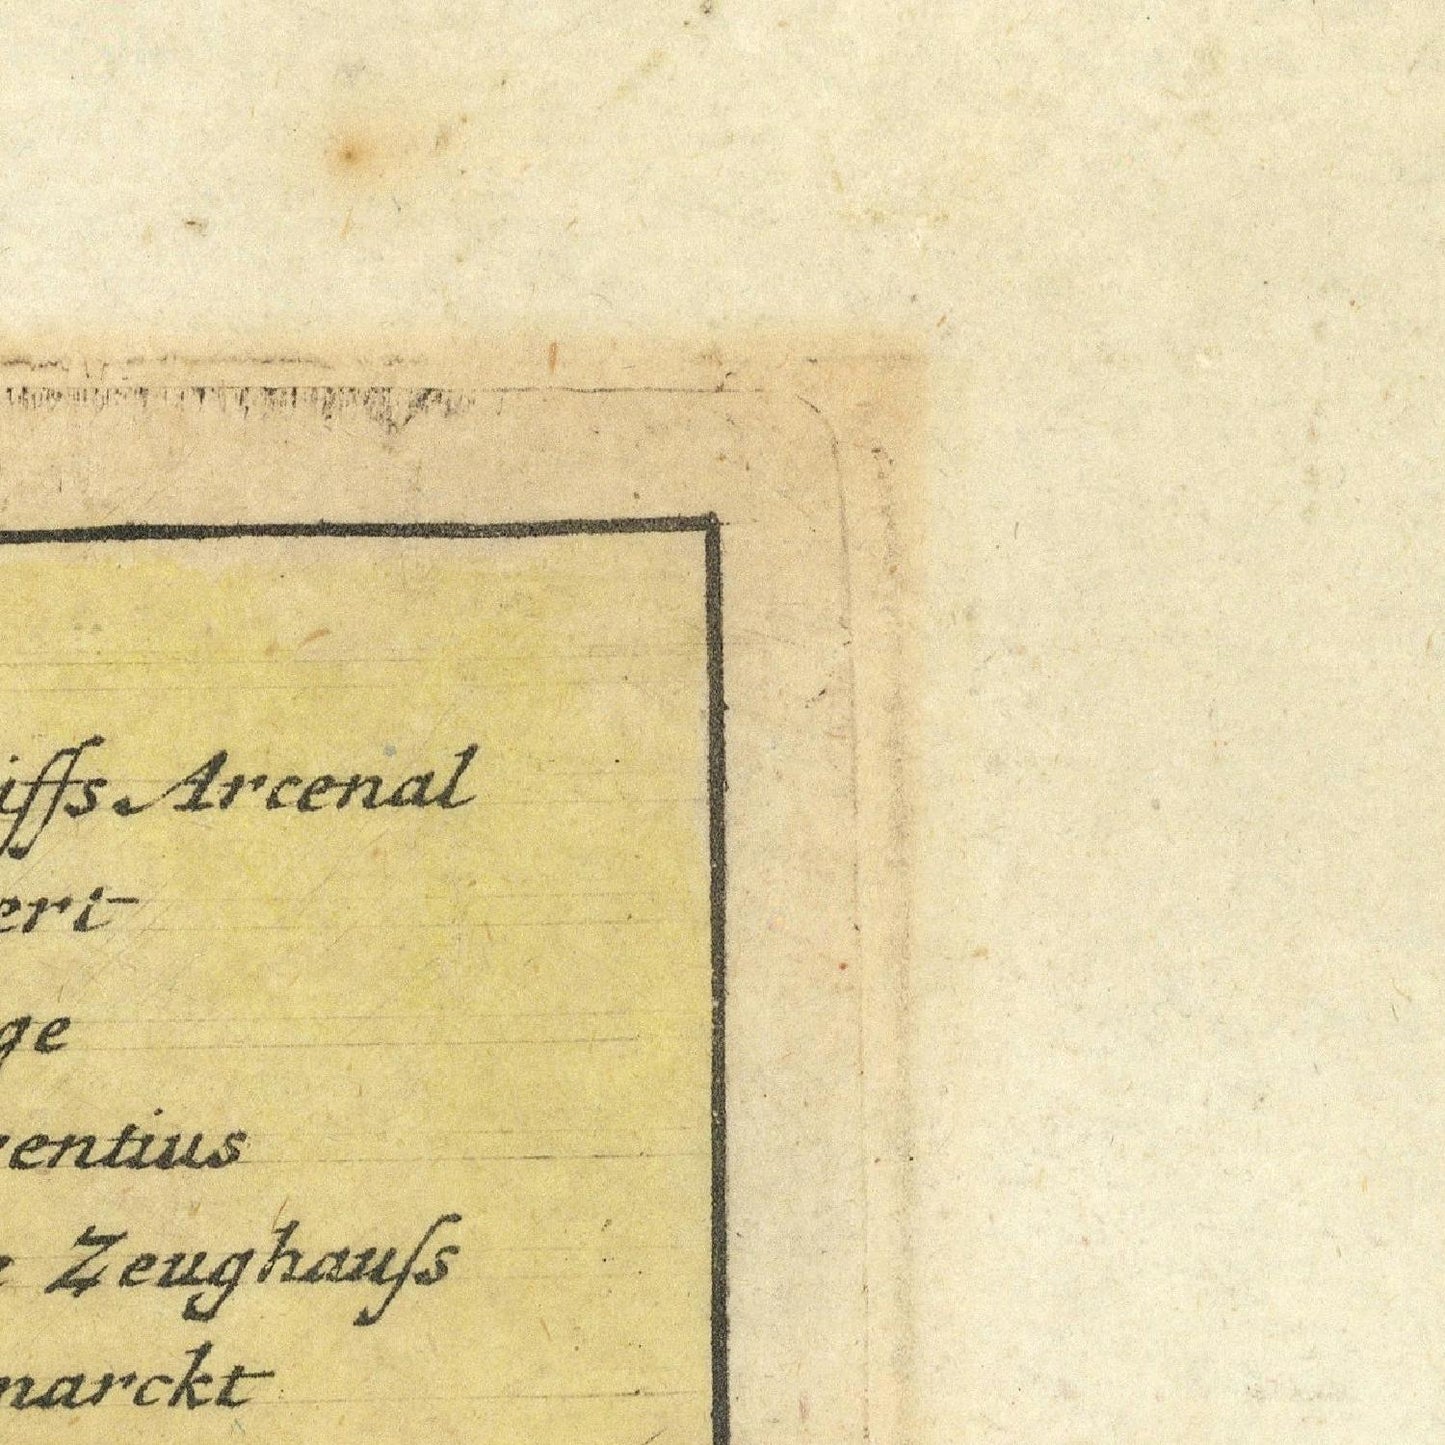 iffs Arcenal
ert
ge
rentius
e Zeughauſs
marckt